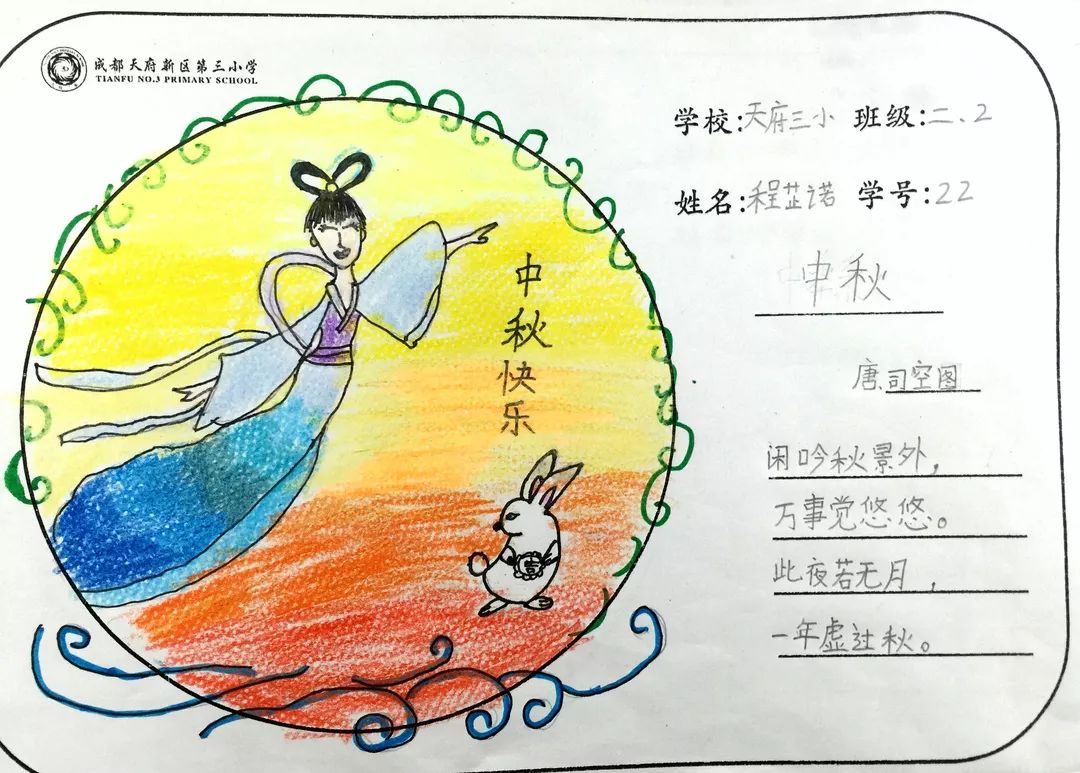 成都天府新区第三小学
TIANFU NO.3 PRIMARY SCHOOL
学校:天府三小 班级:二、2
姓名:程芷诺 学号:22
中秋
唐司空图
闲吟秋景外，
万事觉悠悠。
此夜若无月，
一年虚过秋。
中秋快乐